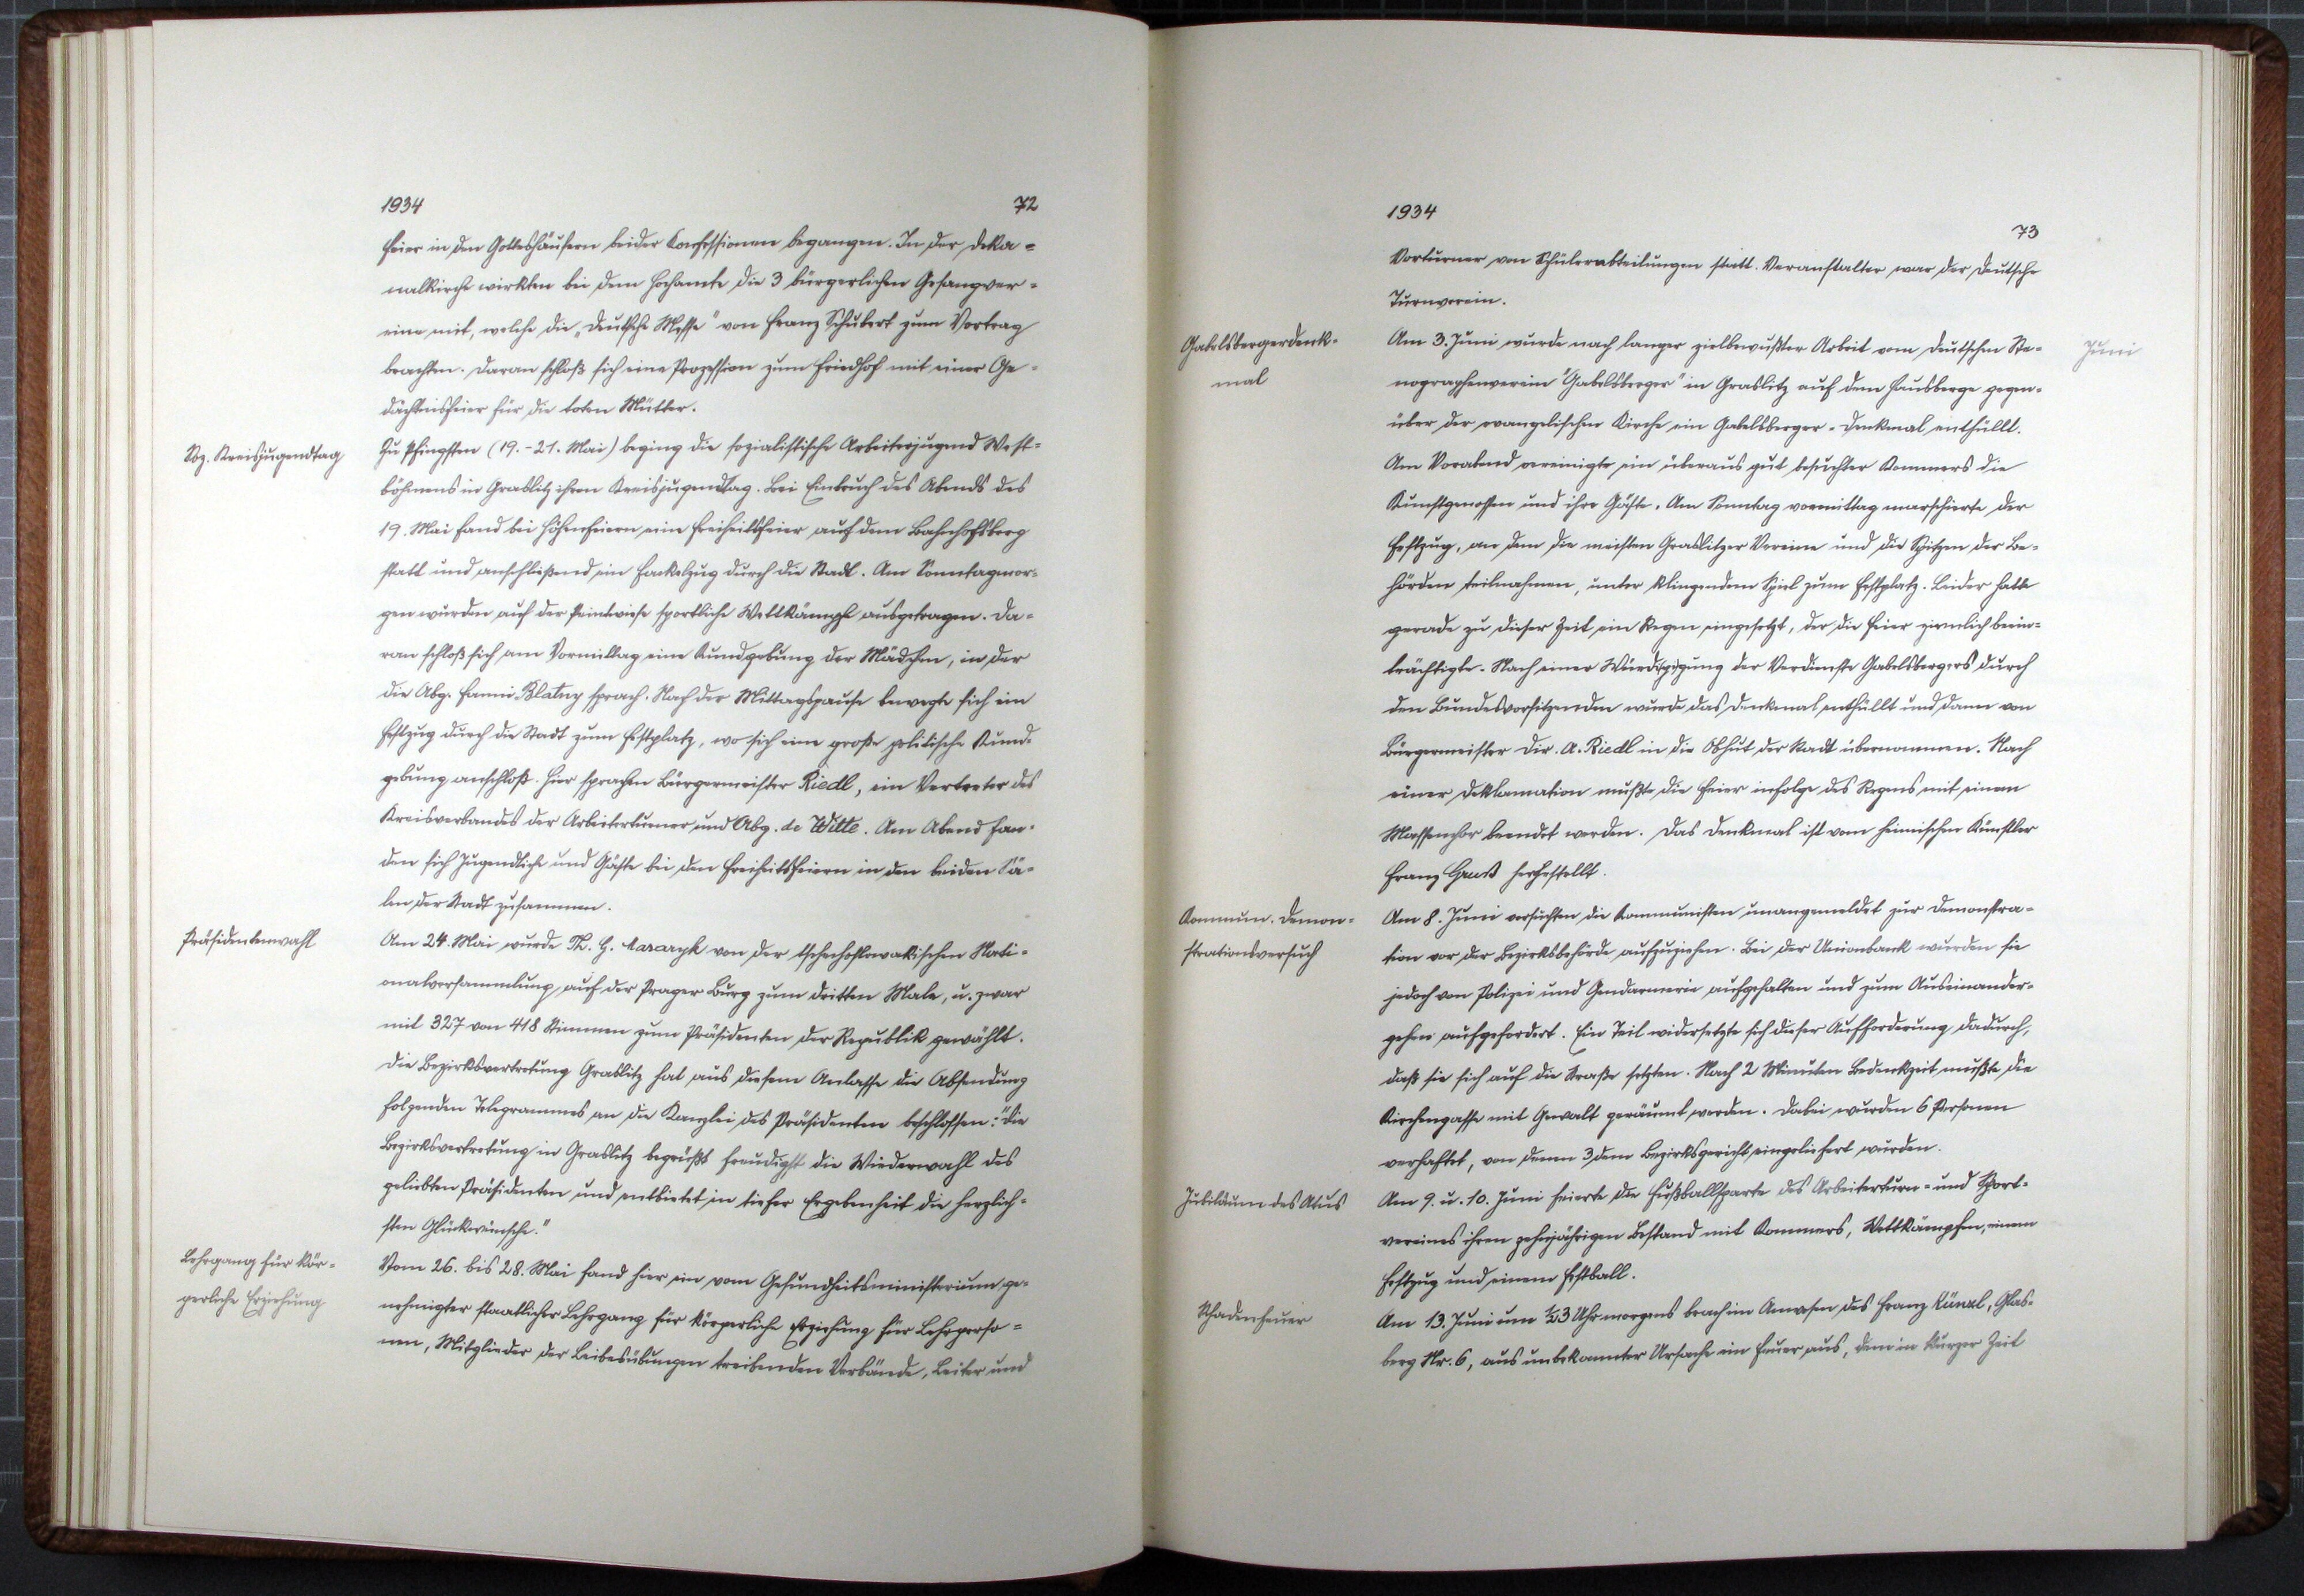 1934
72
feier in den Gotteshäusern beider Konfessionen begangen. In der Deka-
nalkirche wirkten bei dem Hochamte die 3 bürgerlichen Gesangver-
eine mit, welche die „Deutsche Messe" von Franz Schubert zum Vortrag
brachten. Daran schloß sich eine Prozession zum Friedhof mit einer Ge-
dächtnisfeier für die toten Mütter.
Soz. Kreisjugendtag
Zu Pfingsten (19.-21. Mai) beging die sozialistische Arbeiterjugend West-
böhmens in Graslitz ihren Kreisjugendtag. Bei Einbruch des Abends des
19. Mai fand bei Höhenfeuern eine Freiheitsfeier auf dem Bahnhofsberg
statt und anschließend ein Fackelzug durch die Stadt. Am Sonntagmor-
gen wurden auf der Peintwiese sportliche Wettkämpfe ausgetragen. Da-
ran schloß sich am Vormittag eine Kundgebung der Mädchen, in der
die Abg. Fanni Blatny sprach. Nach der Mittagspause bewegte sich ein
Festzug durch die Stadt zum Festplatz, wo sich eine große politische Kund-
gebung anschloß. Hier sprachen Bürgermeister Riedl, ein Vertreter des
Kreisverbandes der Arbeiterturner und Abg. de Witte. Am Abend fan-
den sich Jugendliche und Gäste bei den Freiheitsfeiern in den beiden Sä-
len der Stadt zusammen.
Präsidentenwahl
Am 24. Mai wurde Th. G. Masaryk von der tschechoslowakischen Nati-
onalversammlung auf der Prager Burg zum dritten Male, u. zwar
mit 327 von 418 Stimmen zum Präsidenten der Republik gewählt.
Die Bezirksvertretung Graslitz hat aus diesem Anlasse die Absendung
folgenden Telegrammes an die Kanzlei des Präsidenten beschlossen: "Die
Bezirksvertretung in Graslitz begrüßt freudigst die Wiederwahl des
geliebten Präsidenten und entbietet in tiefer Ergebenheit die herzlich-
sten Glückwünsche."
Lehrgang für kör-
perliche Erziehung
Vom 26. bis 28. Mai fand hier ein vom Gesundheitsministerium ge-
nehmigter staatlicher Lehrgang für körperliche Erziehung für Lehrperso-
nen, Mitglieder der Leibesübungen treibenden Verbände, Leiter und
1934
73
Vorturner von Schülerabteilungen statt. Veranstalter war der Deutsche
Turnverein.
Gabelsbergerdenk-
mal
Juni
Am 3. Juni wurde nach langer zielbewußter Arbeit vom deutschen Ste-
nographenverein "Gabelsberger" in Graslitz auf dem Hausberge gegen-
über der evangelischen Kirche ein Gabelsberger-Denkmal enthüllt.
Am Vorabend vereinigte ein überaus gut besuchter Kommers die
Kunstgenossen und ihre Gäste. Am Sonntag vormittag marschierte der
Festzug, an dem die meisten Graslitzer Vereine und die Spitzen der Be-
hörden teilnahmen, unter klingendem Spiel zum Festplatz. Leider hatte
gerade zu dieser Zeit ein Regen eingesetzt, der die Feier ziemlich beein-
trächtigte. Nach einer Würdigung der Verdienste Gabelsbergers durch
den Bundesvorsitzenden wurde das Denkmal enthüllt und dann von
Bürgermeister Dir. A. Riedl in die Obhut der Stadt übernommen. Nach
einer Deklamation mußte die Feier infolge des Regens mit einem
Massenchor beendet werden. Das Denkmal ist vom heimischen Künstler
Franz Gruß hergestellt.
Kommun. Demon-
strationsversuch
Am 8. Juni versuchten die Kommunisten unangemeldet zur Demonstra-
tion vor der Bezirksbehörde aufzuziehen. Bei der Unionbank wurden sie
jedoch von Polizei und Gendarmerie aufgehalten und zum Auseinander-
gehen aufgefordert. Ein Teil widersetzte sich dieser Aufforderung dadurch,
daß sie sich auf die Straße setzten. Nach 2 Minuten Bedenkzeit mußte die
Kirchengasse mit Gewalt geräumt werden. Dabei wurden 6 Personen
verhaftet, von denen 3 dem Bezirksgericht eingeliefert wurden.
Jubiläum des Atus
Am 9. u. 10. Juni feierte die Fußballsparte des Arbeiterturn- und Sport-
vereines ihren zehnjährigen Bestand mit Kommers, Wettkämpfen, einem
Festzug und einem Festball.
Schadenfeuer
Am 13. Juni um ½3 Uhr morgens brach im Anwesen des Franz Künzl, Glas-
berg Nr. 6, aus unbekannter Ursache ein Feuer aus, dem in kurzer Zeit